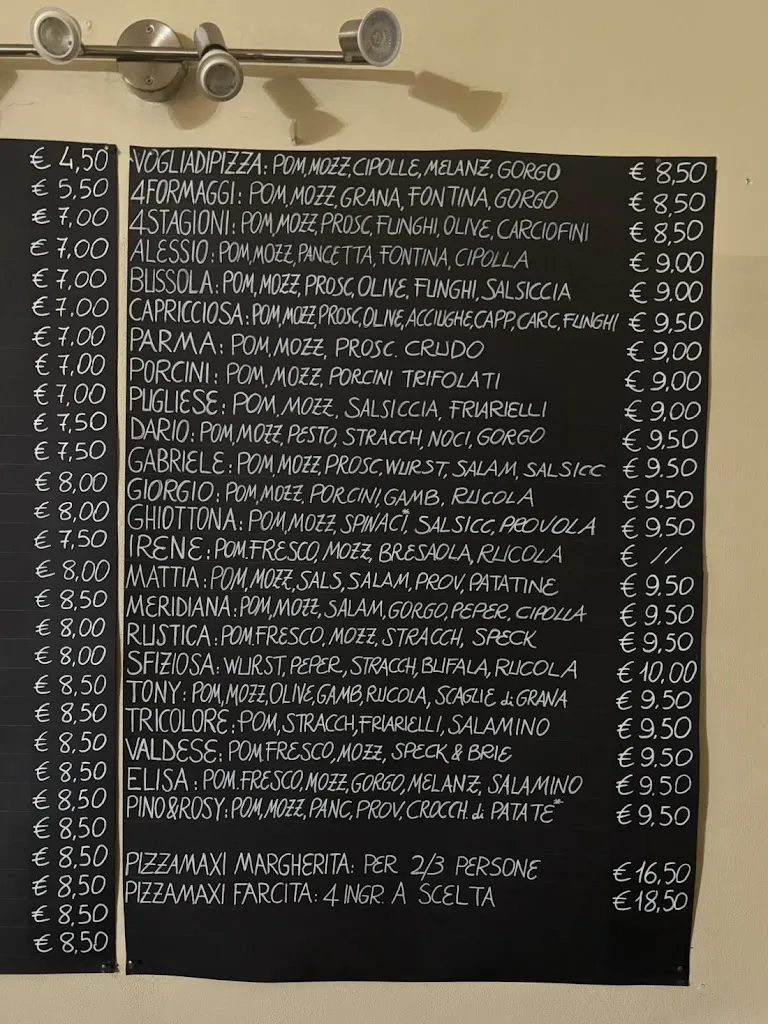 € 4,50
€ 5,50
€ 7,00
€ 7,00
€ 7,00
€ 7,00
€ 7,00
€ 7,00
€ 7,00
€ 7,50
€ 7,50
€ 8,00
€ 8,00
€ 7,50
€ 8,00
€ 8,50
€ 8,00
€ 8,00
€ 8,50
€ 8,50
€ 8,50
€ 8,50
€ 8,50
€ 8,50
€ 8,50
€ 8,50
€ 8,50
€ 8,50
VOGLIADIPIZZA: POM,MOZZ,CIPOLLE, MELANZ, GORGO € 8,50
4FORMAGGI: POM,MOZZ, GRANA, FONTINA, GORGO € 8,50
4STAGIONI: POM,MOZZ PROSC, FUNGHI, OLIVE, CARCIOFINI € 8,50
ALESSIO: POM,MOZZ,PANCETTA, FONTINA, CIPOLLA € 9.00
BUSSOLA: POM,MOZZ, PROSC,OLIVE, FUNGHI, SALSICCIA € 9.00
CAPRICCIOSA: POM,MOZZ,PROSC,OLIVE,ACCIUGHE,CAPP,CARC,FUNGHI € 9,50
PARMA: POM,MOZZ, PROSC. CRUDO € 9,00
PORCINI: POM, MOZZ, PORCINI TRIFOLATI € 9,00
PUGLIESE: POM, MOZZ, SALSICCIA, FRIARIELLI € 9,00
DARIO: POM,MOZZ, PESTO, STRACCH, NOCI, GORGO € 9.50
GABRIELE: POM,MOZZ,PROSC,WURST, SALAM, SALSICC € 9.50
GIORGIO: POM,MOZZ, PORCINI, GAMB. RUCOLA € 9.50
GHIOTTONA: POM,MOZZ, SPINACI*, SALSICC, PROVOLA € 9,50
IRENE: POM.FRESCO, MOZZ, BRESAOLA, RUCOLA € //
MATTIA: POM,MOZZ,SALS, SALAM, PROV, PATATINE € 9.50
MERIDIANA: POM,MOZZ, SALAM,GORGO,PEPER, CIPOLLA € 9.50
RUSTICA: POMFRESCO, MOZZ, STRACCH, SPECK € 9,50
SFIZIOSA: WURST, PEPER, STRACCH,BUFALA, RUCOLA € 10,00
TONY: POM,MOZZ,OLIVE,GAMB,RUCOLA, SCAGLIE di GRANA € 9.50
TRICOLORE: POM,STRACCH,FRIARIELLI, SALAMINO € 9.50
VALDESE: POMFRESCO,MOZZ, SPECK & BRIE € 9.50
ELISA: POM.FRESCO,MOZZ,GORGO,MELANZ, SALAMINO € 9.50
PINO&ROSY: POM,MOZZ, PANC, PROV, CROCCH. di PATATE* € 9,50
PIZZAMAXI MARGHERITA: PER 2/3 PERSONE € 16,50
PIZZAMAXI FARCITA: 4 INGR. A SCELTA € 18,50